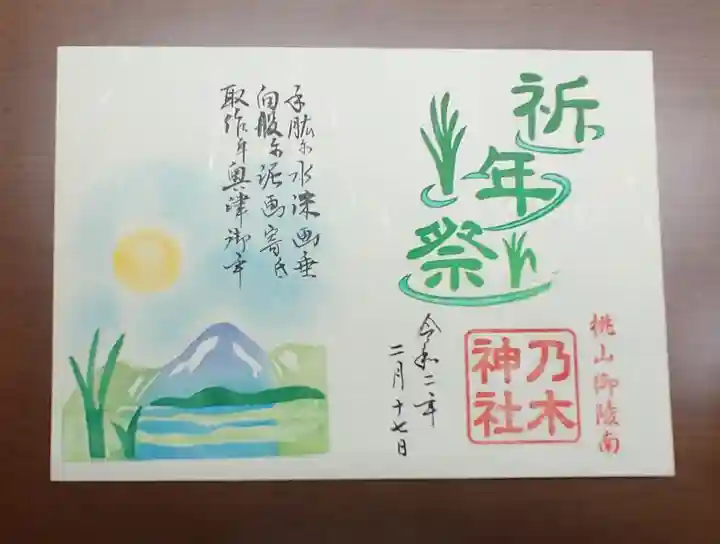 祈年祭
桃山御陵南
乃木神社
令和二年
二月十七日
手肱尓水沫画垂
向股尓泥画寄氐
取作牟奥津御年